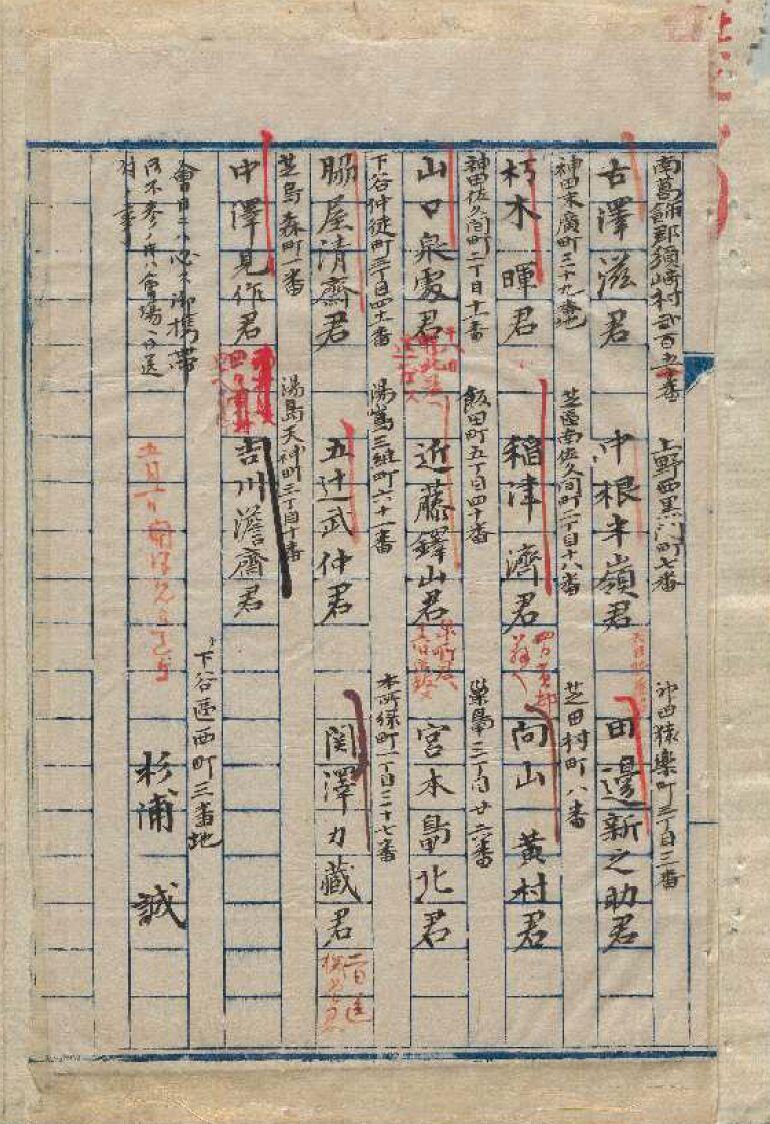 南葛飾郡須崎村弐百五十番
古澤滋君
上野西黒門町七番
中根半嶺君
神田猿楽町三丁目三番
田邊新之助君
神田末廣町三十九番地
朽木暉君
芝區南佐久間町二丁目十八番
稲津濟君
芝田村町八番
向山黄村君
神田佐久間町二丁目十一番
山口泉處君
飯田町五丁目四十番
近藤鐸山君
巣鴨三丁目廿六番
宮本鴨北君
下谷仲徒町三丁目四十一番
脇屋清齋君
湯嶌三組町六十一番
五辻武仲君
本所緑町一丁目三十七番
関澤力藏君
芝烏森町一番
中澤見作君
湯島天神町三丁目十番
吉川澹齋君
下谷區西町三番地
杉浦誠
會日ニハ必ス御携帯